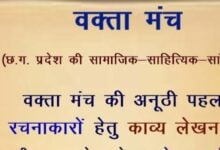 वक्ता मंच
(छ.ग. प्रदेश की सामाजिक–साहित्यिक–सां
वक्ता मंच की अनूठी पहल
रचनाकारों हेतु काव्य लेखन